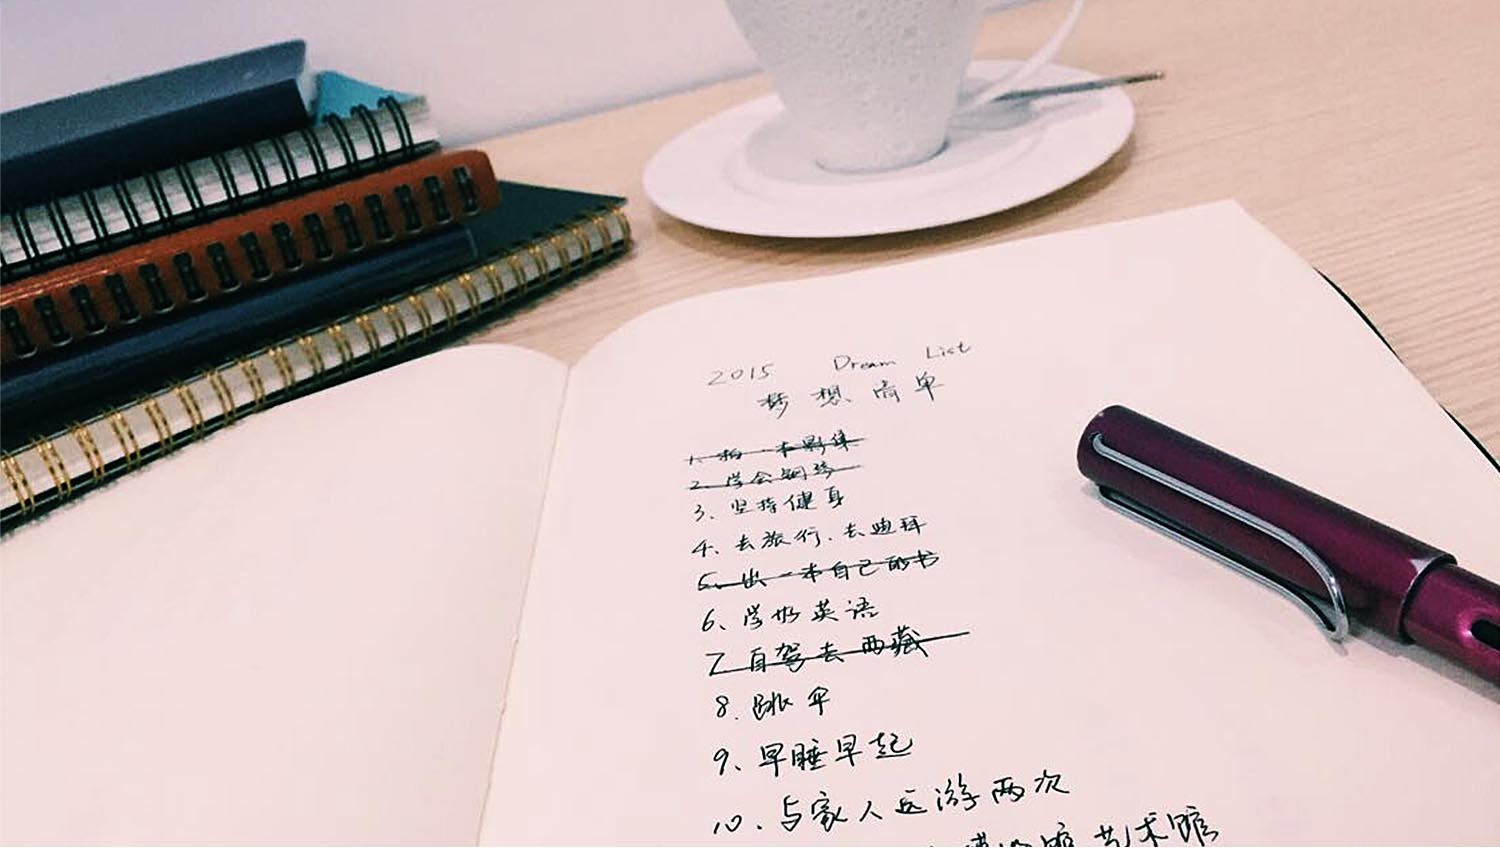 2015 Dream List
梦想清单
1、拍一本影集
2、学会钢琴
3、坚持健身
4、去旅行、去迪拜
5、出一本自己的书
6、学好英语
7、自驾去西藏
8、跳伞
9、早睡早起
10、与家人远游两次
馆 艺术馆